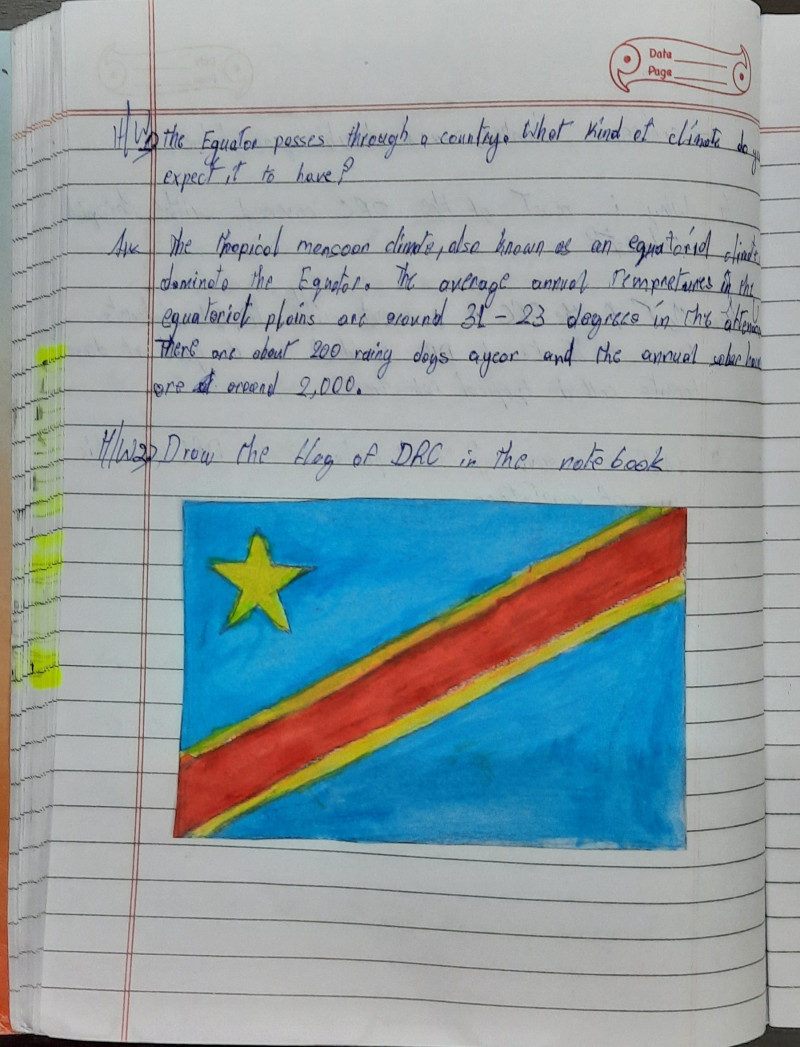 Date
Page
H/W1) the Equator passes through a country. What kind of climate do you
expect it to have?
Ans The tropical monsoon climate, also known as an equatorial climate
dominate the Equator. The average annual Tempretures in the
equatorial plains are around 31 - 23 degrees in the
There are about 200 rainy days a year and the annual
are around 2,000.
H/W2) Draw the flag of DRC in the notebook